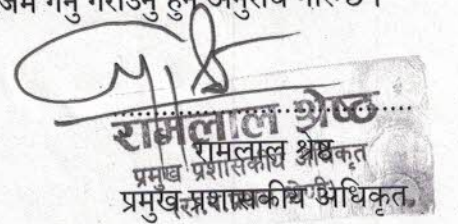 गर्नु गराउनु हुन अनुरोध
रामलाल श्रेष्ठ
रामलाल श्रेष्ठ
प्रमुख प्रशासकीय अधिकृत
प्रमुख प्रशासकीय अधिकृत